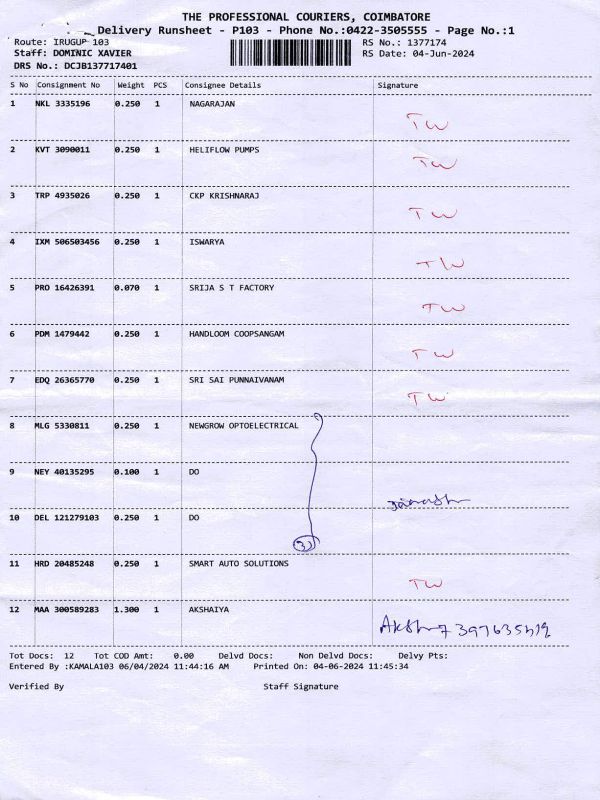 THE PROFESSIONAL COURIERS, COIMBATORE
Delivery Runsheet - P103 - Phone No.:0422-3505555 - Page No.:1
Route: IRUGUP 103 RS No.: 1377174
Staff: DOMINIC XAVIER RS Date: 04-Jun-2024
DRS No.: DCJB137717401
S No Consignment No Weight PCS Consignee Details Signature
1 NKL 3335196 0.250 1 NAGARAJAN
TW
2 KVT 3090011 0.250 1 HELIFLOW PUMPS
TW
3 TRP 4935026 0.250 1 CKP KRISHNARAJ
TW
4 IXM 506503456 0.250 1 ISWARYA
TW
5 PRO 16426391 0.070 1 SRIJA S T FACTORY
TW
6 PDM 1479442 0.250 1 HANDLOOM COOPSANGAM
TW
7 EDQ 26365770 0.250 1 SRI SAI PUNNAIVANAM
TW
8 MLG 5330811 0.250 1 NEWGROW OPTOELECTRICAL
9 NEY 40135295 0.100 1 DO
10 DEL 121279103 0.250 1 DO
3
11 HRD 20485248 0.250 1 SMART AUTO SOLUTIONS
TW
12 MAA 300589283 1.300 1 AKSHAIYA
Tot Docs: 12 Tot COD Amt: 0.00 Delvd Docs: Non Delvd Docs: Delvy Pts:
Entered By :KAMALA103 06/04/2024 11:44:16 AM Printed On: 04-06-2024 11:45:34
Verified By Staff Signature